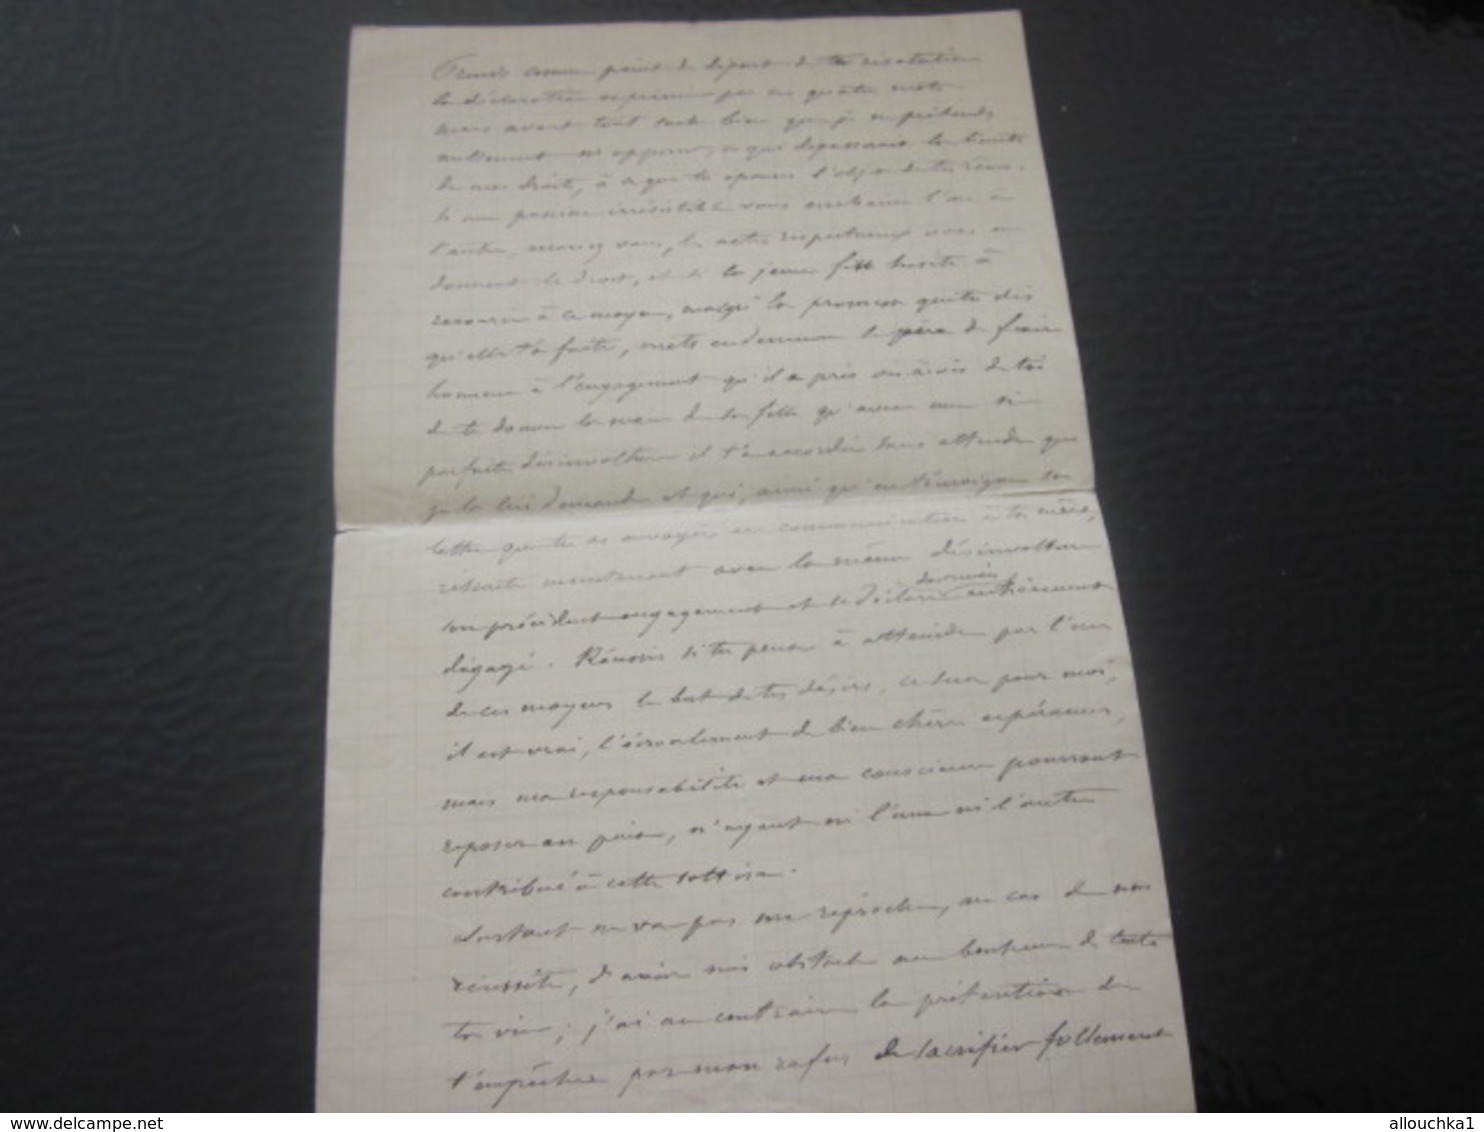 Prends comme point de départ de ta résolution
la déclaration exprimée par ces quatre mots
mais avant tout sache bien que je ne prétends
nullement m'opposer, ce qui dépasserait la limite
de mes droits, à ce que tu épouses l'objet de tes rêves.
Si une passion irrésistible vous entraîne l'un à
l'autre, mariez vous, les actes respectueux vous en
donnent le droit, et si la jeune fille hésite à
recourir à ce moyen, malgré la promesse que tu dis
qu'elle t'a faite, mets en demeure le père de faire
honneur à l'engagement qu'il a pris vis à vis de toi
de te donner la main de sa fille qu'avec une si
parfaite désinvolture il t'a accordée sans attendre que
je la lui demande et qui, ainsi qu'en témoigne la
lettre que tu as envoyée en communication à ta mère,
rétracte maintenant avec la même désinvolture
son précédent engagement et se déclare désormais entièrement
dégagé. Réussis si tu peux à atteindre par l'un
de ces moyens le but de tes désirs, ce sera pour moi,
il est vrai, l'écroulement de bien chères espérances,
mais ma responsabilité et ma conscience pourront
reposer en paix, n'ayant ni l'une ni l'autre
contribué à cette sottise.
Surtout ne va pas me reprocher, en cas de non
réussite, d'avoir mis obstacle au bonheur de toute
ta vie; j'ai au contraire la prétention de
t'empêcher par mon refus de sacrifier follement
delcampe.net
allouchka1